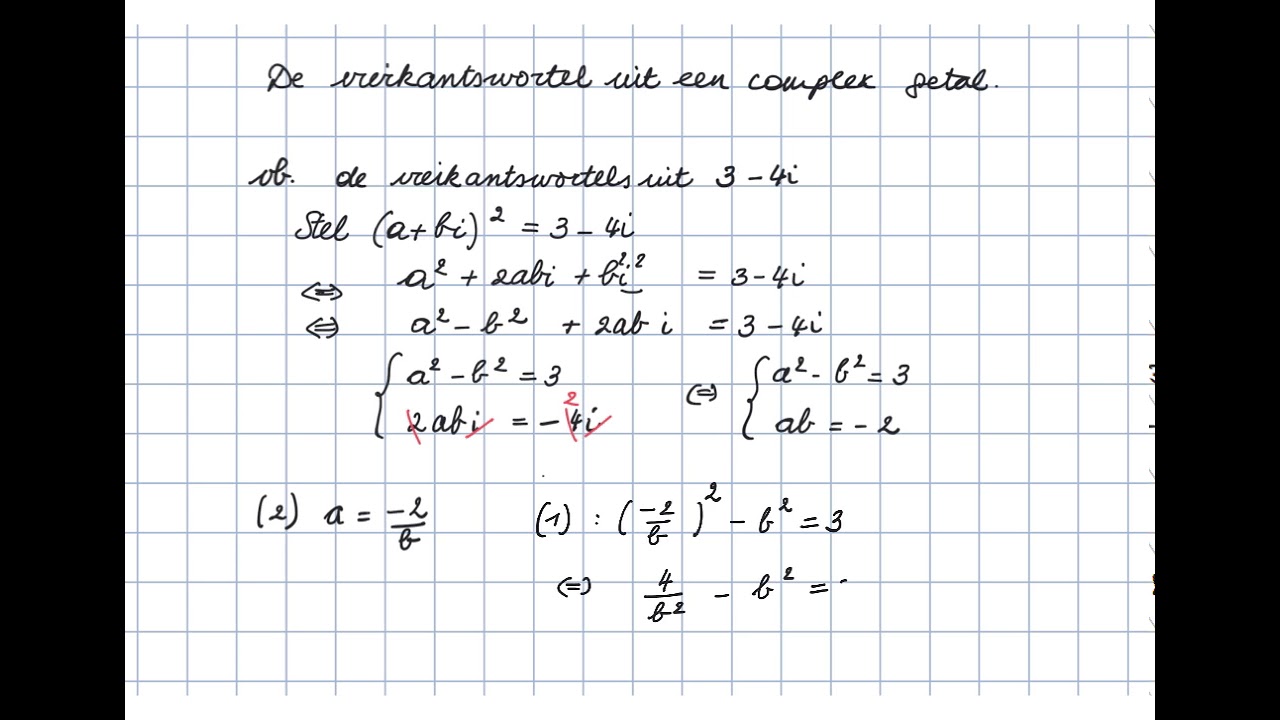 De vierkantswortel uit een complex getal.
vb. de vierkantswortels uit 3 - 4i
Stel (a+bi)² = 3 - 4i
⇔ a² + 2abi + b²i² = 3 - 4i
⇔ a² - b² + 2ab i = 3 - 4i
{ a² - b² = 3 ⇔ { a² - b² = 3
2abi = - 4i 2 ab = - 2
(2) a = -2/b (1) : (-2/b)² - b² = 3
⇔ 4/b² - b² =